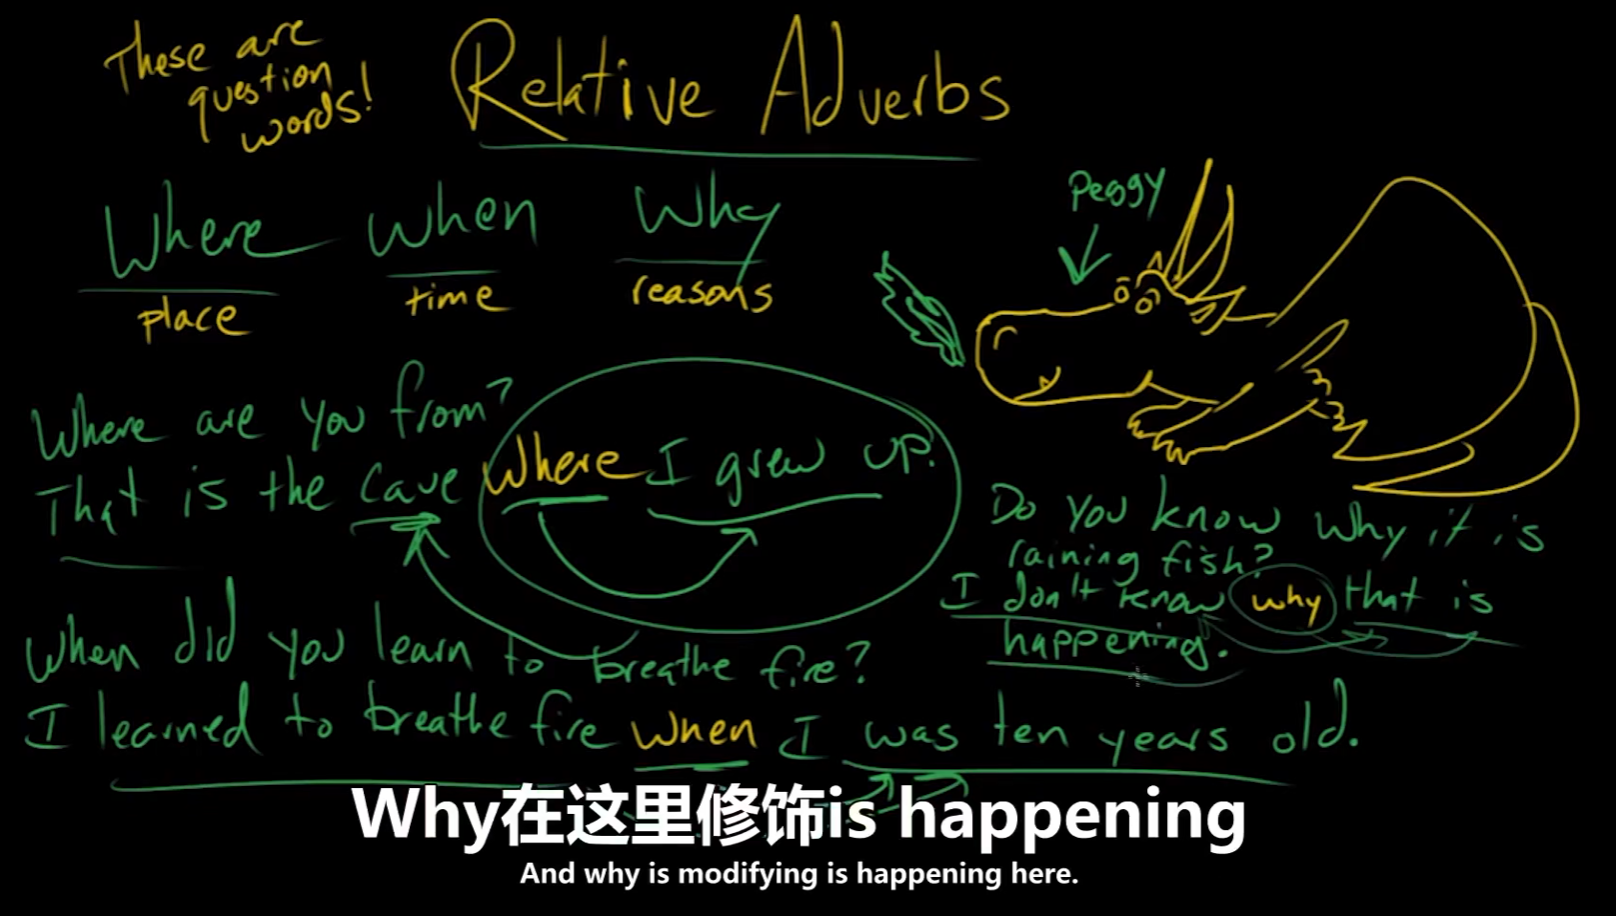 These are
question
words!
Relative Adverbs
Where When Why
place time reasons
Peggy
Where are you from?
That is the cave where I grew up.
Do you know why it is
raining fish?
I don't know why that is
happening.
When did you learn to breathe fire?
I learned to breathe fire when I was ten years old.
Why在这里修饰is happening
And why is modifying is happening here.